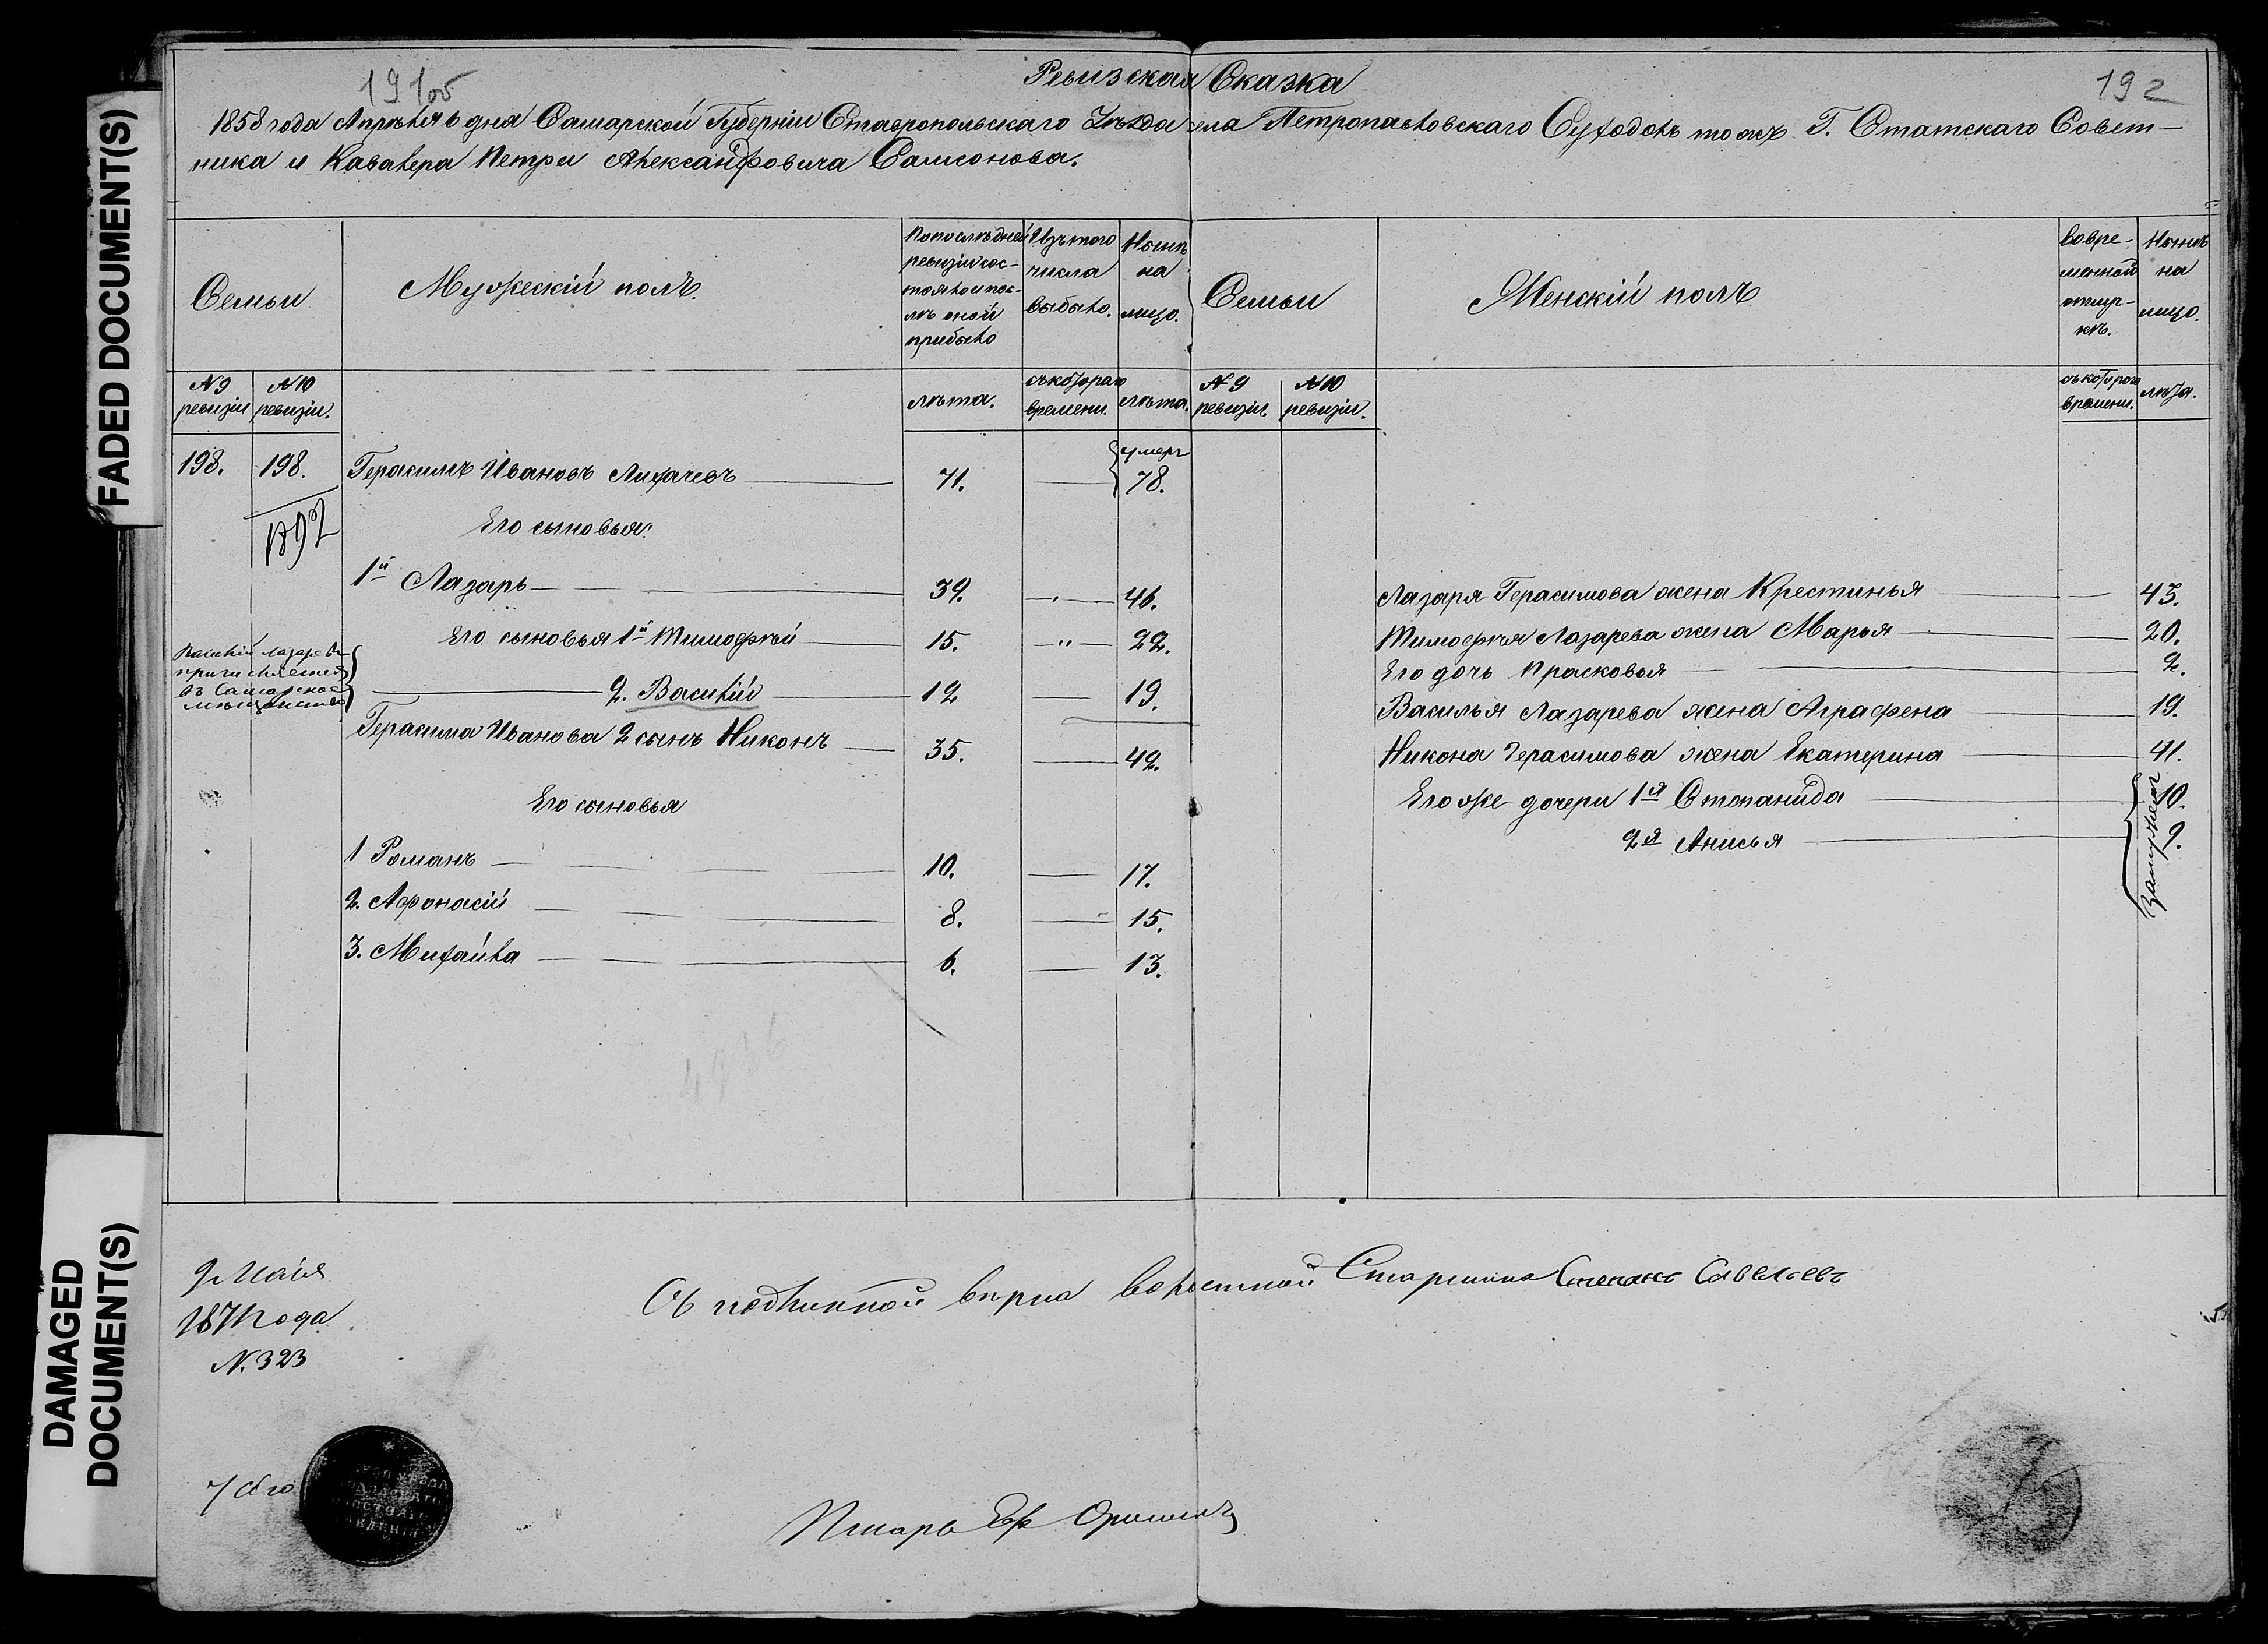 FADED DOCUMENT(S)
DAMAGED
DOCUMENT(S)
191об
192
Ревизская Сказка
1858 года Апрѣля 6 дня Самарской Губерніи Ставропольскаго Уѣзда села Петропавловскаго Суходолъ тожъ Г. Статскаго Совет-
ника и Кавалера Петра Александровича Самсонова.
Семьи
Мужескій полъ.
По последней
ревизіи сос-
тояло и пос-
лѣ оной
прибыло
Изъ того
числа
выбыло.
Нынѣ
на
лицо.
Семьи
Женскій полъ
Во вре-
менной
отлуч-
кѣ.
Нынѣ
на
лицо.
№9
ревизіи
№10
ревизіи.
лѣта.
съ котораго
времени.
лѣта.
№9
ревизіи.
№10
ревизіи.
съ котораго
времени.
лѣта.
198. 198. Герасимъ Ивановъ Лихачевъ 71. умеръ 78.
1892
Его сыновья:
1й Лазарь 39. 46.
Лазаря Герасимова жена Крестинья 43.
Его сыновья 1й Тимофѣй 15. 22.
Тимофѣя Лазарева жена Марья 20.
Его дочь Прасковья 2.
Василій Лазаревъ
причисляется
въ Самарское
мѣщанство
2. Василій 12 19.
Василья Лазарева жена Аграфена 19.
Герасима Иванова 2 сынъ Никонъ 35. 42.
Никона Герасимова жена Екатерина 41.
Его сыновья
Его же дочери 1я Степанида 10.
2я Анисья 9.
замужемъ
1 Романъ 10. 17.
2. Афонасій 8. 15.
3. Михайла 6. 13.
9 Маія
1871 года
N. 323
Съ подлинной вѣрна волостной Старшина Степанъ Савельевъ
Писарь